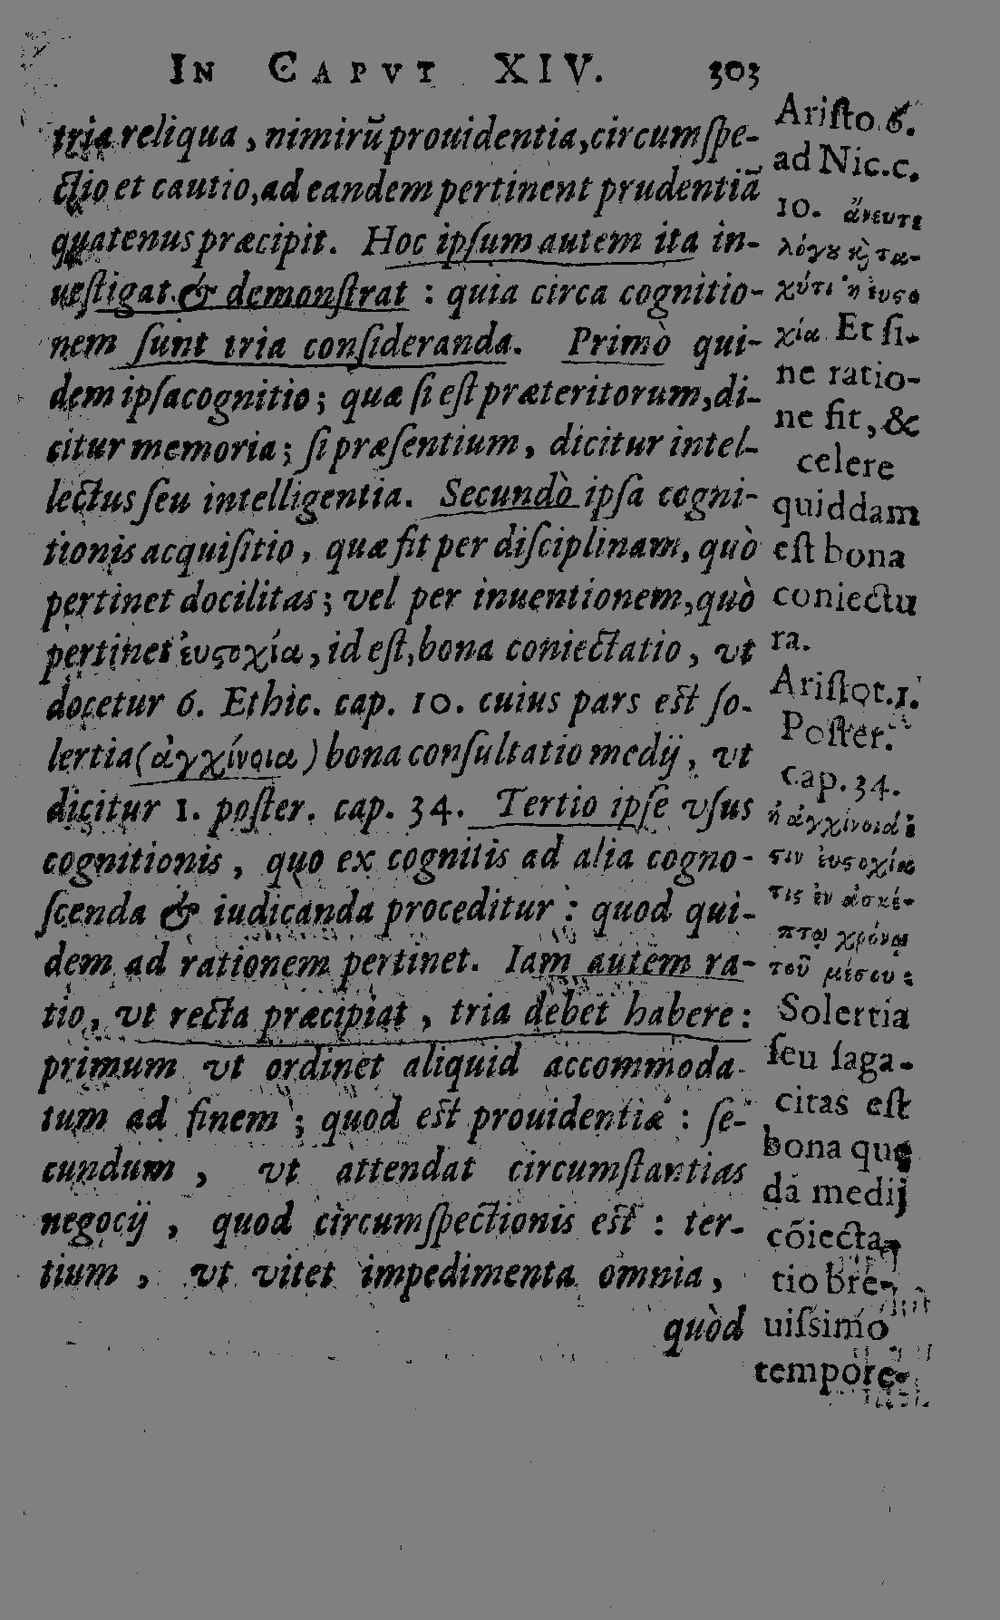 IN CAPVT XIV. 303
tria reliqua, nimirũ prouidentia, circumspe-
ctio et cautio, ad eandem pertinent prudentiã
quatenus præcipit. Hoc ipsum autem ita in-
uestigat & demonstrat : quia circa cognitio-
nem sunt tria consideranda. Primò qui-
dem ipsa cognitio ; quæ si est præteritorum, di-
citur memoria ; si præsentium, dicitur intel-
lectus seu intelligentia. Secundò ipsa cogni-
tionis acquisitio, quæ fit per disciplinam, quò
pertinet docilitas ; vel per inuentionem, quò
pertinet ἐυϛοχία, id est, bona coniectatio, vt
docetur 6. Ethic. cap. 10. cuius pars est so-
lertia (ἀγχίνοια) bona consultatio medij, vt
dicitur 1. poster. cap. 34. Tertio ipse vsus
cognitionis, quo ex cognitis ad alia cogno-
scenda & iudicanda proceditur : quod qui-
dem ad rationem pertinet. Iam autem ra-
tio, vt recta præcipiat, tria debet habere :
primum vt ordinet aliquid accommoda-
tum ad finem ; quod est prouidentiæ : se-
cundum, vt attendat circumstantias
negocij, quod circumspectionis est : ter-
tium, vt vitet impedimenta omnia,
quòd
Aristo. 6.
ad Nic. c.
10. ἄνευ τε
λόγου κὶ τα-
χύ τι ἡ ἐυϛο
χία. Et si-
ne ratio-
ne fit, &
celere
quiddam
est bona
coniectu
ra.
Aristot. 1.
Poster.
cap. 34.
ἡ ἀγχίνοιά ἐ
ϛιν ἐυϛοχία
τις ἐν ἀσκέ-
πτῳ χρόνῳ
τοῦ μέσου :
Solertia
seu saga-
citas est
bona quę
dã medij
cõiecta-
tio bre-
uissimo
tempore.